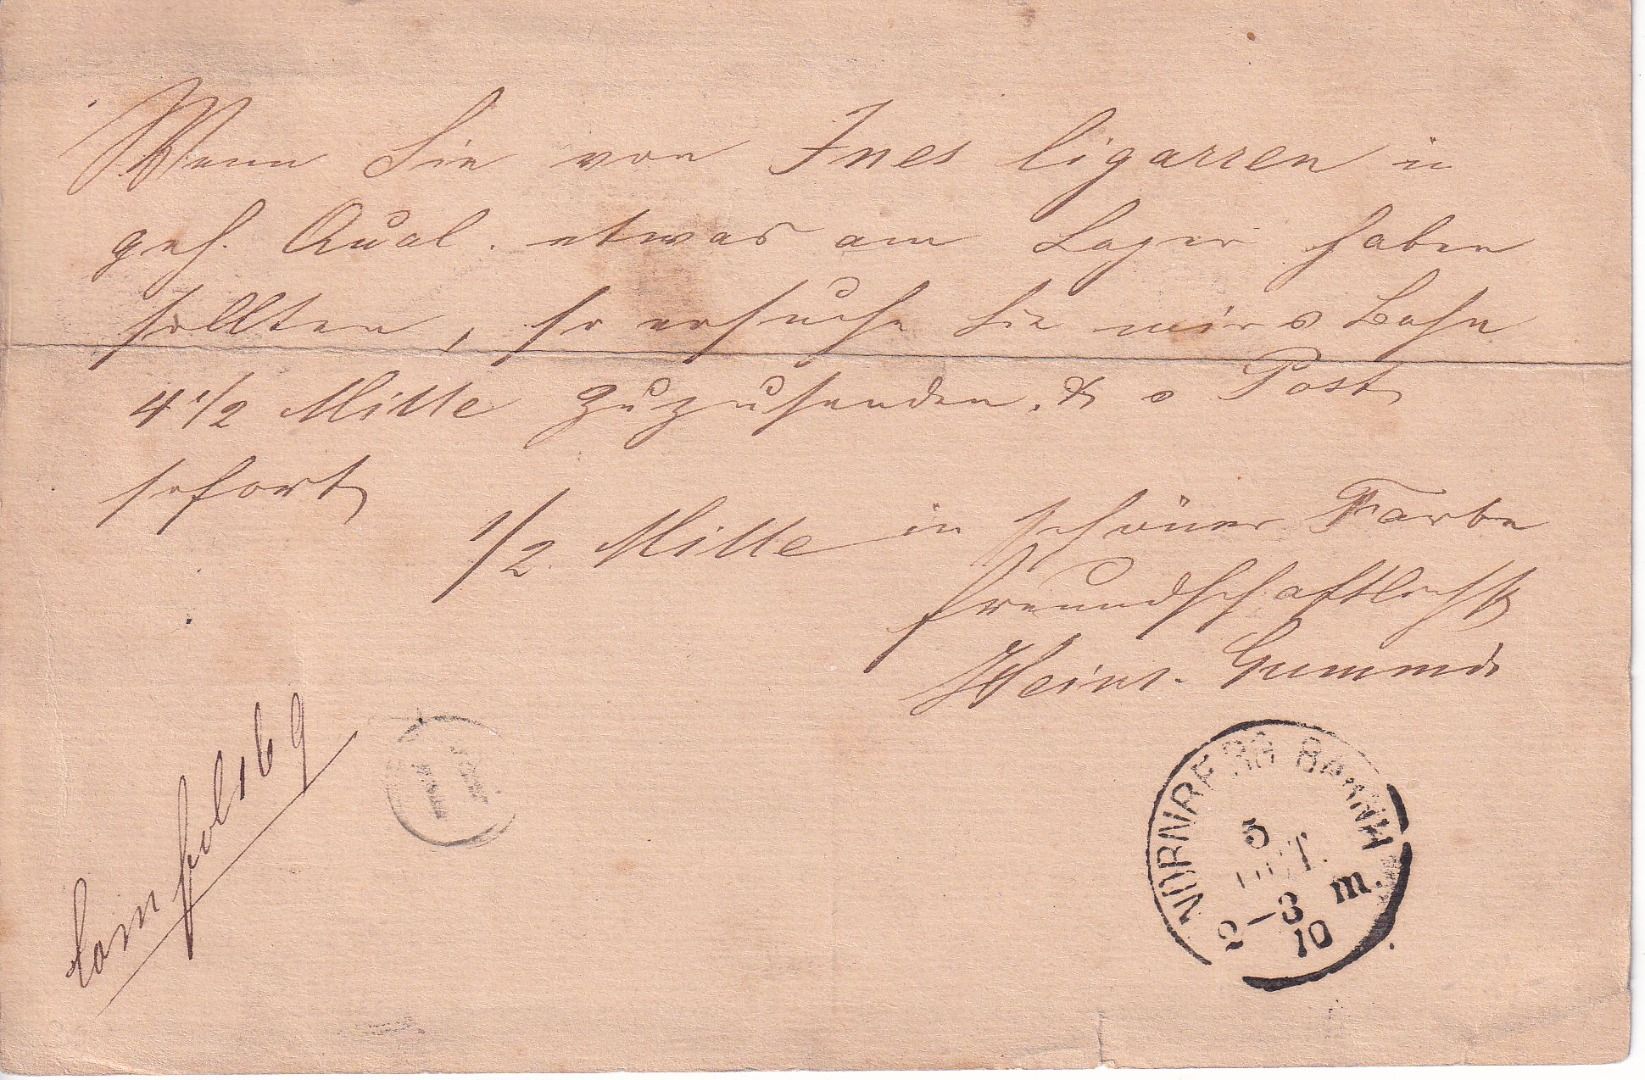 Wenn Sie von Ines Cigarren in
geh. Qual. etwas am Lager haben
sollten, so ersuche Sie mir p Bahn
4 1/2 Mille zuzusenden. & p Post
sofort
1/2 Mille in schöner Farbe
freundschaftlichst
Heinr.
fol 169
NÜRNBERG BAHNH
5
OCT.
2-3 m.
10